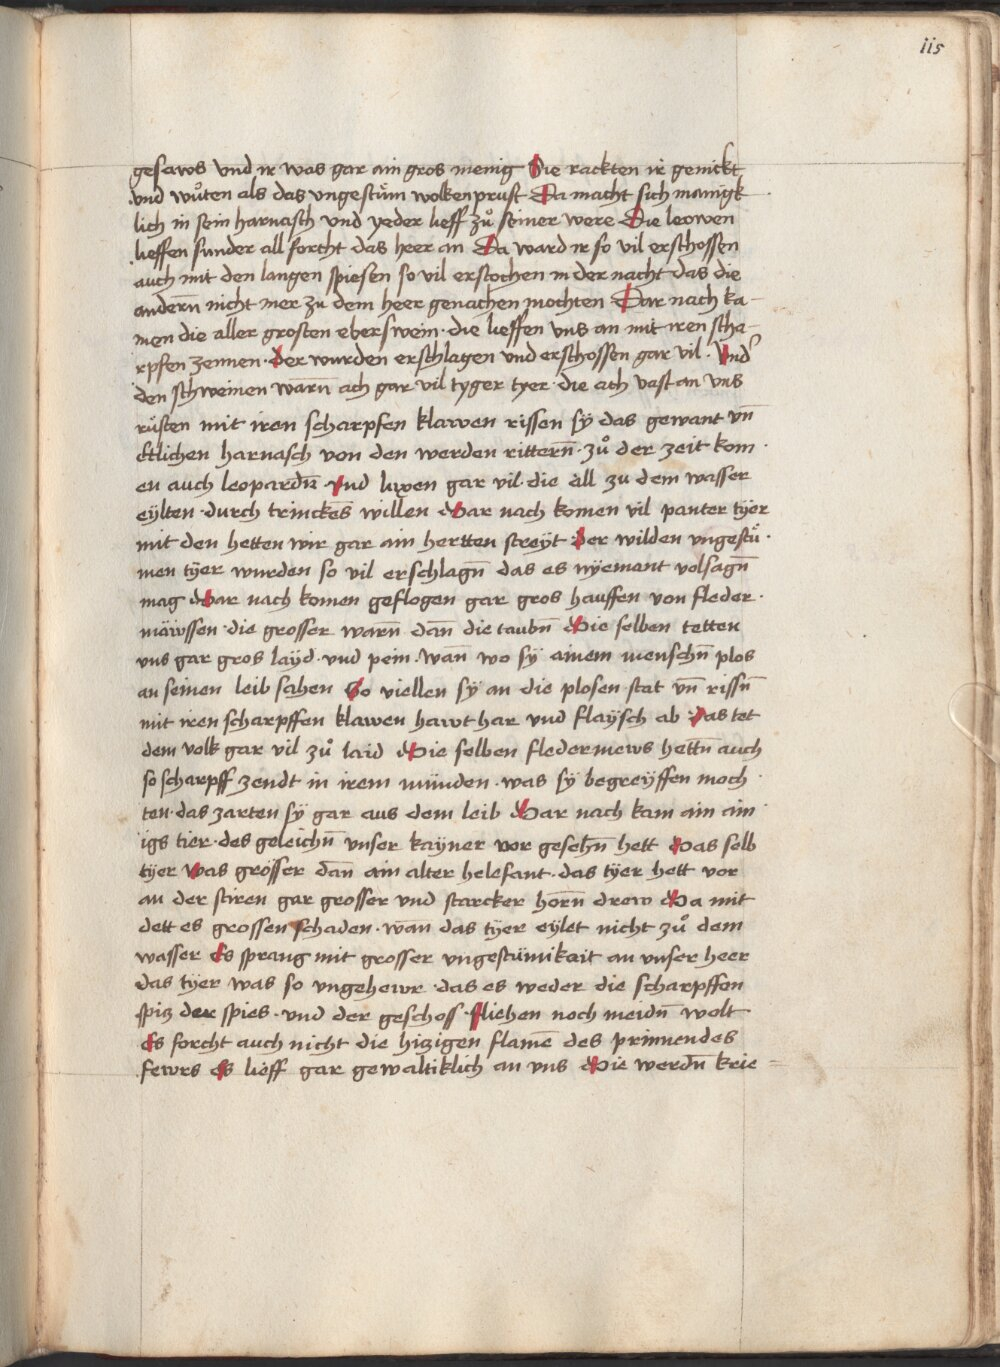 iis
gesaws vnd ir was gar ain gros menig Die rackten ir genickt
vnd wůten als das vngestům wolkenprust Da macht sich manigk
lich in sein harnasch vnd yeder lieff zů seiner were Die leowen
lieffen sunder all forcht das heer an Da ward ir so vil erschossen
auch mit den langen spiesen so vil erstochen in der nacht das die
andern̄ nicht mer zu dem heer genachen mochten Dar nach ka-
men die aller grosten eberswein · die lieffen vns an mit iren scha-
rpfen zennen · der wurden erschlagen vnd erschossen gar vil · Vnd'
den schweinen warn̄ ach gar vil tyger tyer · die ach vast an vns
růsten mit iren scharpfen klawen rissen sÿ das gewant vn̄
ettlichen harnasch von den werden rittern̄ · zů der zeit kom ·
en auch leopardn̄ · vnd luxen gar vil · die all zu dem wasser
eÿlten · durch trinckēs willen Dar nach komen vil panter tÿer
mit den hetten wir gar ain hertten streÿt · der wilden vngestů ·
men tÿer wurden so vil erschlagn̄ das es nÿemant volsagn̄
mag Dar nach komen geflogen gar gros hauffen von fleder ·
mäwssen · die grosser warn̄ dan̄ die taubn̄ Die selben tetten
vns gar gros laÿd · vnd pein · wan̄ wo sÿ ainem menschn̄ plos
an seinen leib sahen So viellen sÿ an die plosen stat vn̄ rissn̄
mit iren scharpffen klawen hawt har vnd flaÿsch ab das tet
dem volk gar vil zů laid Die selben fledermews hettn̄ auch
so scharpff zendt in irem münden · was sÿ begreÿffen moch ·
ten · das zarten sÿ gar aus dem leib Dar nach kam ain ain
igs tier · des geleichn̄ vnser kaÿner vor gesehn̄ hett Das selb
tÿer was grösser dan̄ ain alter helefant · das tÿer hett vor
an der stiren gar grosser vnd starcker horn̄ drew Da mit
dett es grossen schaden · wan̄ das tÿer eÿlet nicht zů dem
wasser Es sprang mit grosser vngestümikait an vnser heer
das tÿer was so vngehewr · das es weder die scharpffon
spiz der spies · vnd der geschoss · fliehen noch meidn̄ wolt
Es forcht auch nicht die hizigen flamē des prinnendes
fewrs es lieff gar gewaltiklich an vns Die werdn̄ krie =